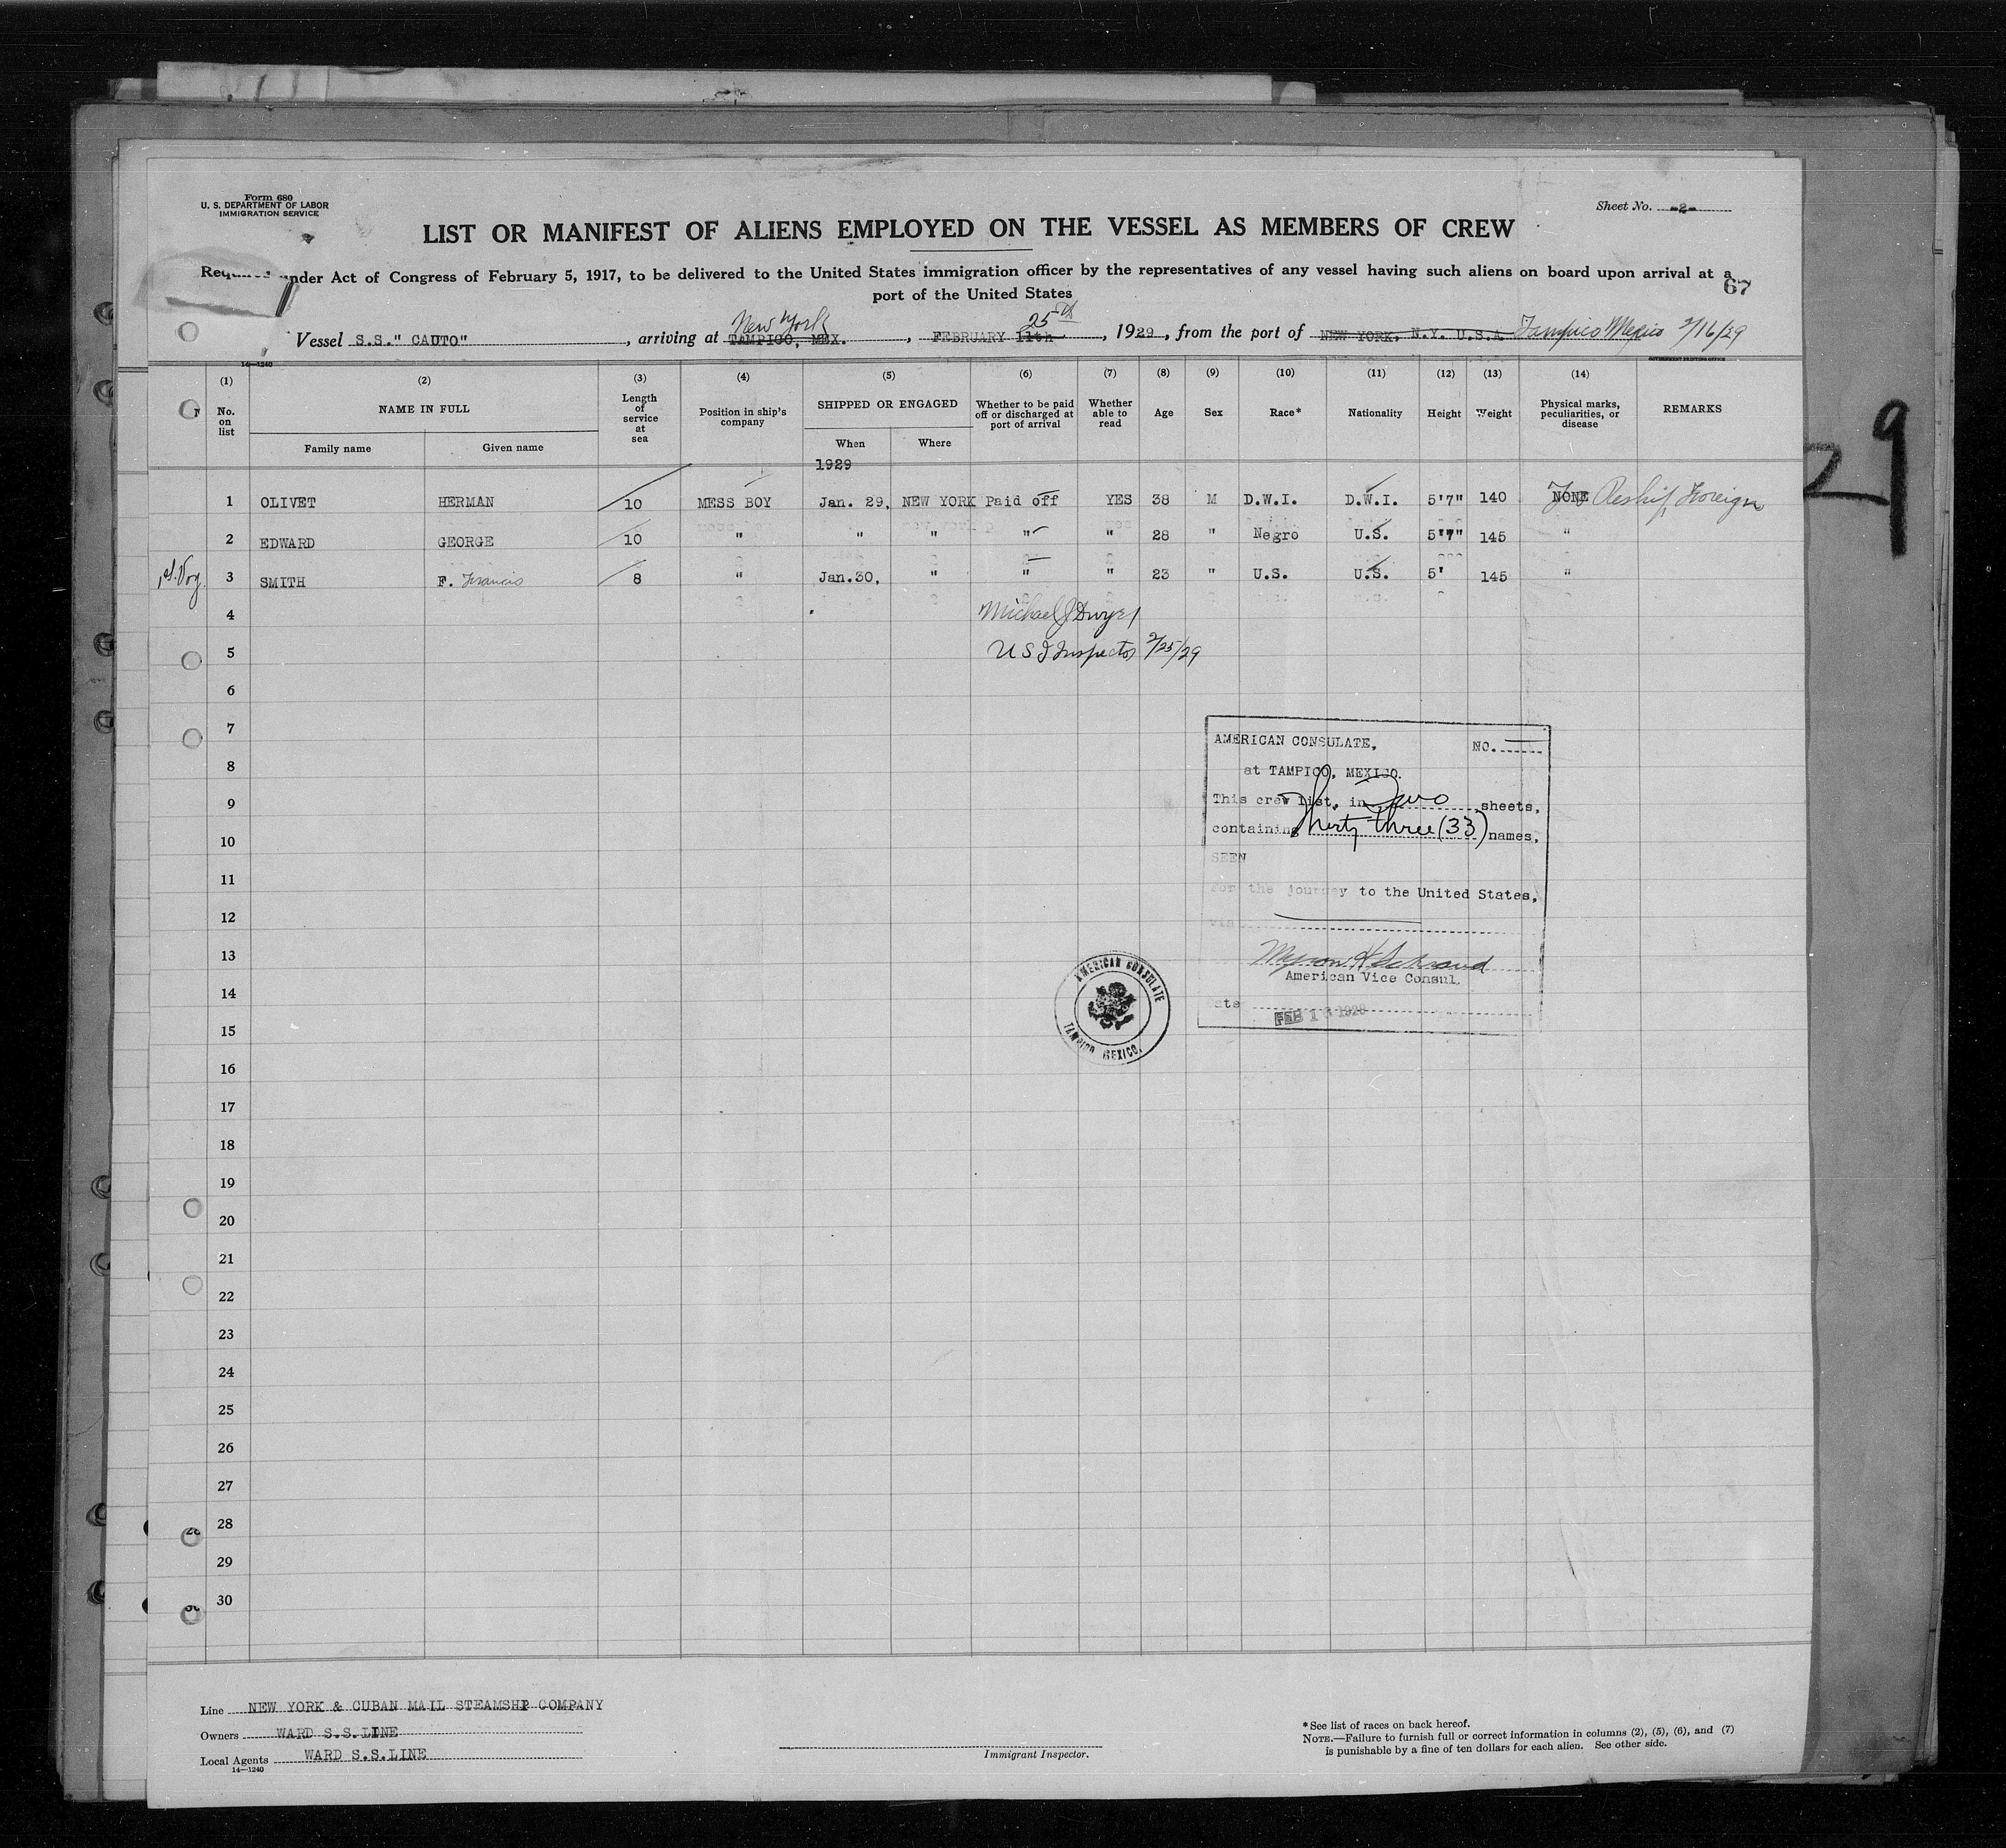 Form 680
U. S. DEPARTMENT OF LABOR
IMMIGRATION SERVICE
Sheet No. -2-
LIST OR MANIFEST OF ALIENS EMPLOYED ON THE VESSEL AS MEMBERS OF CREW
Required under Act of Congress of February 5, 1917, to be delivered to the United States immigration officer by the representatives of any vessel having such aliens on board upon arrival at a
port of the United States
67
New York 25th
Vessel S.S." CAUTO" , arriving at TAMPICO, MEX. , FEBRUARY 11th , 1929 , from the port of NEW YORK, N.Y. U.S.A. Tampico Mexico 2/16/29
14—1240 GOVERNMENT PRINTING OFFICE
(1) (2) (3) (4) (5) (6) (7) (8) (9) (10) (11) (12) (13) (14)
No. on list NAME IN FULL Length of service at sea Position in ship's company SHIPPED OR ENGAGED Whether to be paid off or discharged at port of arrival Whether able to read Age Sex Race* Nationality Height Weight Physical marks, peculiarities, or disease REMARKS
Family name Given name When Where
1929
1 OLIVET HERMAN 10 MESS BOY Jan. 29, NEW YORK Paid off YES 38 M D.W.I. D.W.I. 5'7" 140 NONE Reship Foreign
2 EDWARD GEORGE 10 " " " " " 28 " Negro U.S. 5'7" 145 "
1st Voy. 3 SMITH F. Francis 8 " Jan.30, " " " 23 " U.S. U.S. 5' 145 "
4 Michael J Dwyer
5 U S I Inspector 2/25/29
6
7
8
9
10
11
12
13
14
15
16
17
18
19
20
21
22
23
24
25
26
27
28
29
30
AMERICAN CONSULATE, NO.
at TAMPICO, MEXICO.
This crew list, in Two sheets,
containing Thirty three (33) names,
SEEN
For the journey to the United States,
via
American Vice Consul.
Date
FEB 16 1929
AMERICAN CONSULATE
TAMPICO MEXICO.
29
Line NEW YORK & CUBAN MAIL STEAMSHIP COMPANY
Owners WARD S.S.LINE
Local Agents WARD S.S.LINE
14—1240
Immigrant Inspector.
*See list of races on back hereof.
NOTE.—Failure to furnish full or correct information in columns (2), (5), (6), and (7)
is punishable by a fine of ten dollars for each alien. See other side.